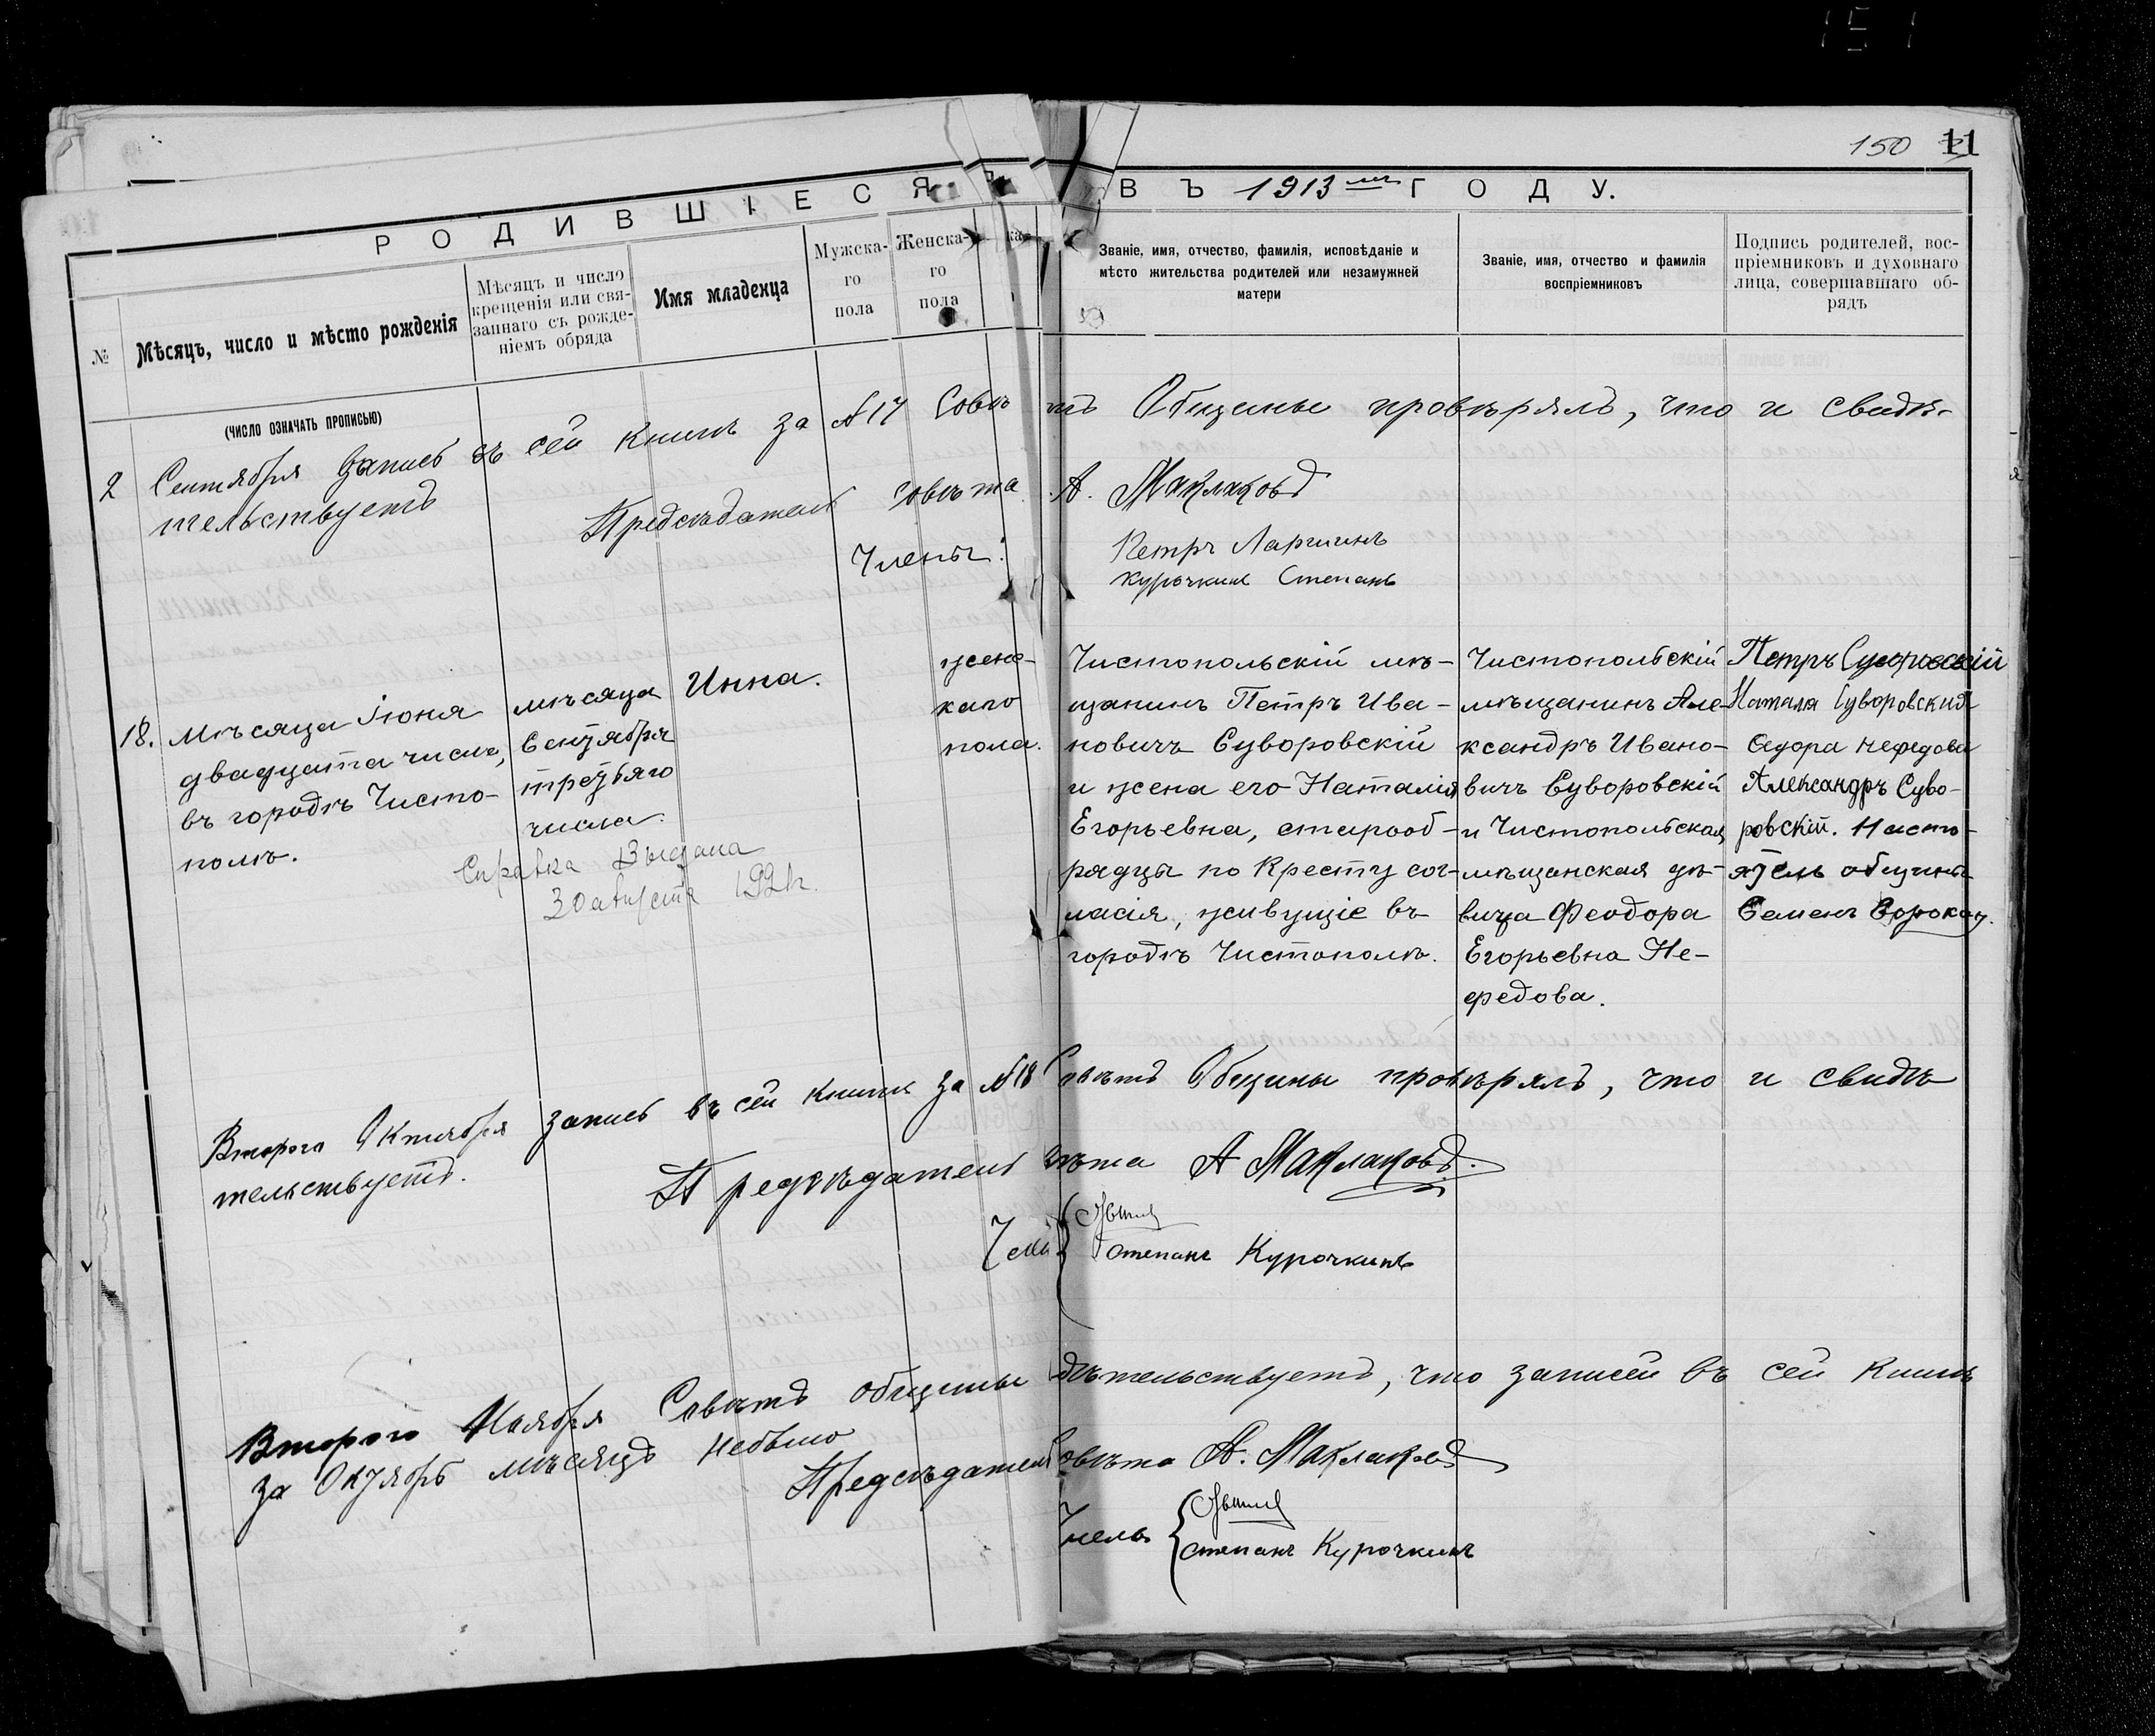 151
150 11
РОДИВШІЕСЯ ВЪ 1913 мъ ГОДУ.
№
Мѣсяцъ, число и мѣсто рожденія
(ЧИСЛО ОЗНАЧАТЬ ПРОПИСЬЮ)
Мѣсяцъ и число
крещенія или свя-
заннаго съ рожде-
ніемъ обряда
Имя младенца
Мужска-
го
пола
Женска-
го
пола
Званіе, имя, отчество, фамилія, исповѣданіе и
мѣсто жительства родителей или незамужней
матери
Званіе, имя, отчество и фамилія
воспріемниковъ
Подпись родителей, вос-
пріемниковъ и духовнаго
лица, совершавшаго об-
рядъ
2 Сентября запись въ сей книгѣ за №17 Совѣтъ Общины провѣрялъ, что и свидѣ-
тельствуетъ
Предсѣдатель Совѣта А. Маклаковъ
Члены:
Петръ Ларшинъ
Курочкинъ Степанъ
18.
Мѣсяца Іюня
двадцата числа,
въ городѣ Чисто-
полѣ.
мѣсяца
Сентября
третьяго
числа.
Инна.
женс-
каго
пола.
Чистопольскій мѣ-
щанинъ Петръ Ива-
новичъ Суворовскій
и жена его Наталія
Егорьевна, старооб-
рядцы по Кресту сог-
ласія, живущіе въ
городѣ Чистополѣ.
Чистопольскій
мѣщанинъ Але-
ксандръ Ивано-
вичъ Суворовскій
и Чистопольская
мѣщанская дѣ-
вица Феодора
Егорьевна Не-
федова.
Петръ Суворовскій
Наталя Суворовския
Федора Нефедова
Александръ Суво-
ровскій. Насто-
ятель общины
Семенъ Сорокин.
Справка Выдана
30 августа 192 г.
Второго Октября запись въ сей книгѣ за №18 Совѣтъ Общины провѣрялъ, что и свидѣ
тельствуетъ.
Предсѣдатель Совѣта А Маклаковъ.
Степанъ Курочкинъ
Второго Ноября Совѣтъ общины свидѣтельствуетъ, что записей въ сей книгѣ
за Октябрь мѣсяцъ небыло
Предсѣдатель Совѣта А. Маклаковъ
Члены
Степанъ Курочкинъ